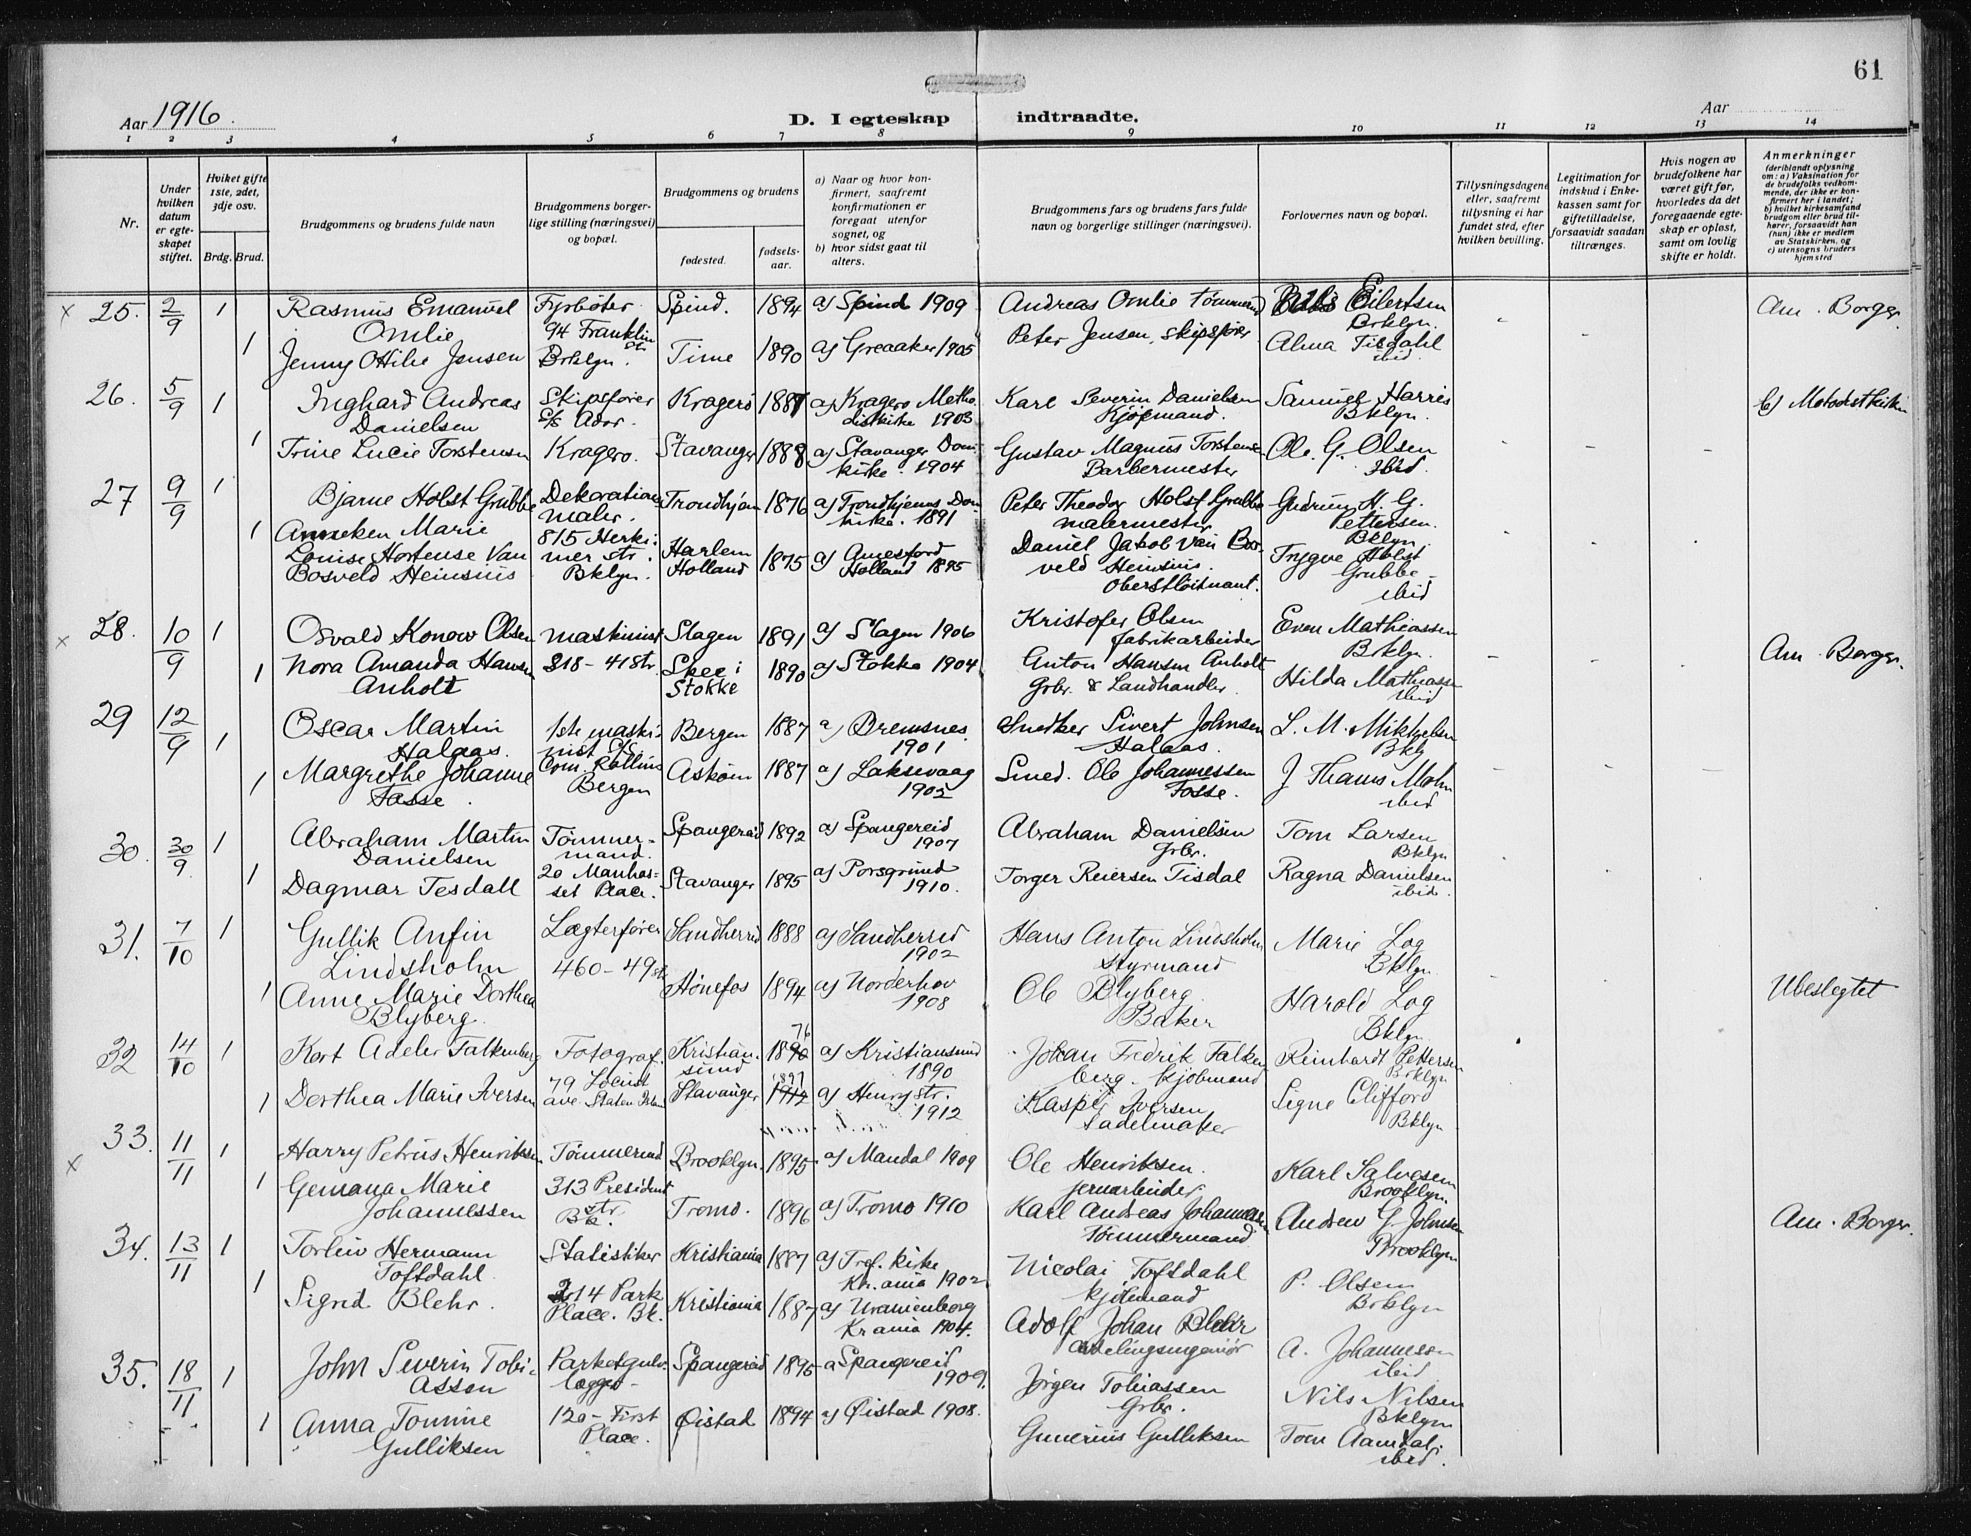 61
Aar 1916.
D. I egteskap indtraadte.
Aar
1 2 3 4 5 6 7 8 9 10 11 12 13 14
Nr.
Under hvilken datum er egteskapet stiftet.
Hviket gifte 1ste, 2det, 3dje osv.
Brdg. Brud.
Brudgommens og brudens fulde navn
Brudgommens borgerlige stilling (næringsvei) og bopæl.
Brudgommens og brudens
fødested.
fødselsaar.
a) Naar og hvor konfirmert, saafremt konfirmationen er foregaat utenfor sognet, og
b) hvor sidst gaat til alters.
Brudgommens fars og brudens fars fulde navn og borgerlige stillinger (næringsvei).
Forlovernes navn og bopæl.
Tillysningsdagene eller, saafremt tillysning ei har fundet sted, efter hvilken bevilling.
Legitimation for indskud i Enkekassen samt for giftetilladelse, forsaavidt saadan tiltrænges.
Hvis nogen av brudefolkene har været gift før, hvorledes da det foregaaende egteskap er opløst, samt om lovlig skifte er holdt.
Anmerkninger
(deriblandt oplysning om: a) Vaksination for de brudefolks vedkommende, der ikke er konfirmert her i landet; b) hvilket kirkesamfund brudgom eller brud tilhører, forsaavidt han (hun) ikke er medlem av Statskirken, og c) utensogns bruders hjemsted
x 25. 2/9 1 Rasmus Emanuel Omlie Fyrbøter 94 Franklin Brklyn. Spind. 1894 a) Spind 1909 Andreas Omlie tømmermd Eilertsen Brklyn. Am. Borger.
1 Jenny Ottilie Jensen Time 1890 a) Greaaker 1905 Peter Jensen, skipsfører Alma Tisdahl ibid
26. 5/9 1 Inghard Andreas Danielsen Skipsfører S/s Ador. Kragerø 1887 a) Kragerø Methodistkirke 1903 Karl Severin Danielsen Kjøpmand. Samuel Harris Bklyn. b) Metodistkirken
1 Trine Lucie Torstensen Kragerø. Stavanger 1888 a) Stavanger Domkirke. 1904 Gustav Magnus Torstensen Barbermester Ole. G. Olsen ibid.
27 9/9 1 Bjarne Holst Grubbe Dekorationsmaler. Trondhjem 1876 a) Trondhjems Domkirke. 1891 Peter Theodor Holst Grubbe malermester Gudrun H. G. Pettersen. Bklyn.
1 Anneken Marie Louise Hortense Van Bosveld Heinsius 815 Herkimer str. Bklyn. Harlem Holland 1875 a) Amesford Holland 1895 Daniel Jakob Van Bosveld Heinsius. Oberstløitnant. Trygve Holst Grubbe ibid
x 28. 10/9 1 Osvald Konow Olsen maskinist Slagen 1891 a) Slagen 1906 Kristofer Olsen fabrikarbeider Even Mathiassen Brklyn. Am. Borger.
1 Nora Amanda Hansen Anholt 318 - 41 str. Skee i Stokke 1890 a) Stokke 1904 Anton Hansen Anholt Grbr. & Landhandler. Hilda Mathiassen ibid
29 12/9 1 Oscar Martin Halaas. 1ste maskinist S/s Com. Rollins Bergen 1887 a) Bremsnes. 1901 Snedker Sivert Johnsen Halaas. L. M. Mikkjelsen Bkly
1 Margrethe Johanne Fosse. Bergen Askøen 1887 a) Laksevaag 1902 Smed. Ole Johannessen Fosse. J Thams Mohn ibid
30. 30/9 1 Abraham Martin Danielsen Tømmermand. Spangereid 1892 a) Spangereid 1907 Abraham Danielsen Grbr. Tom Larsen Bklyn
1 Dagmar Tesdall 20 Manhasset Place. Stavanger 1895 a) Porsgrund 1910. Torger Reiersen Tisdal Ragna Danielsen ibid.
31. 7/10 1 Gullik Anfin Lindsholm Lægterfører Sandherred 1888 a) Sandherred 1902 Hans Anton Lindsholm styrmand Marie Log Bklyn
1 Anne Marie Dorthea Blyberg. 460 - 49 str. Hønefos 1894 a) Norderhov 1908 Ole Blyberg Baker Harold Log Bklyn Ubeslegtet
32 14/10 1 Kort Adeler Falkenberg Fotograf. Kristiansund 1890 76 a) Kristiansund 1890 Johan Fredrik Falkenberg. kjøbmand Reinhardt Pettersen Brklyn
1 Dorthea Marie Iversen 79 Locust ave. Staten Island Stavanger 1912 1897 a) Henry str. 1912 Kasper Iversen Sadelmaker Signe Clifford Bklyn
x 33. 11/11 1 Harry Petrus Henriksen Tømmermd Brooklyn. 1895 a) Mandal 1909 Ole Henriksen. jernarbeider Karl Salvesen Brooklyn.
1 Gemana Marie Johannessen 313 President str. Bk. Tromø. 1896 a) Tromø 1910 Karl Andreas Johannessen Tømmermand Andrew G. Johnsen Brooklyn Am. Borger.
34. 13/11 1 Torleiv Hermann Toftdahl. Statistiker Kristiania 1887 a) Tref. kirke Kr. ania 1902 Nicolai Toftdahl kjøbmand P. Olsen Brklyn
1 Sigrid Blehr. 214 Park Place. Bk. Kristiania 1887 a) Uranienborg Krania 1904. Adolf Johan Blehr avdelingsingeniør A. Johannessen ibid
35. 18/11 1 John Severin Tobiassen Parketgulvlægger Spangereid 1895 a) Spangereid 1909. Jørgen Tobiassen Grbr. Nils Nilsen Bklyn
1 Anna Tomine Gulliksen 120 - First Place. Øistad 1894 a) Øistad 1908. Gunerius Gulliksen Tom Aamdal. ibid.